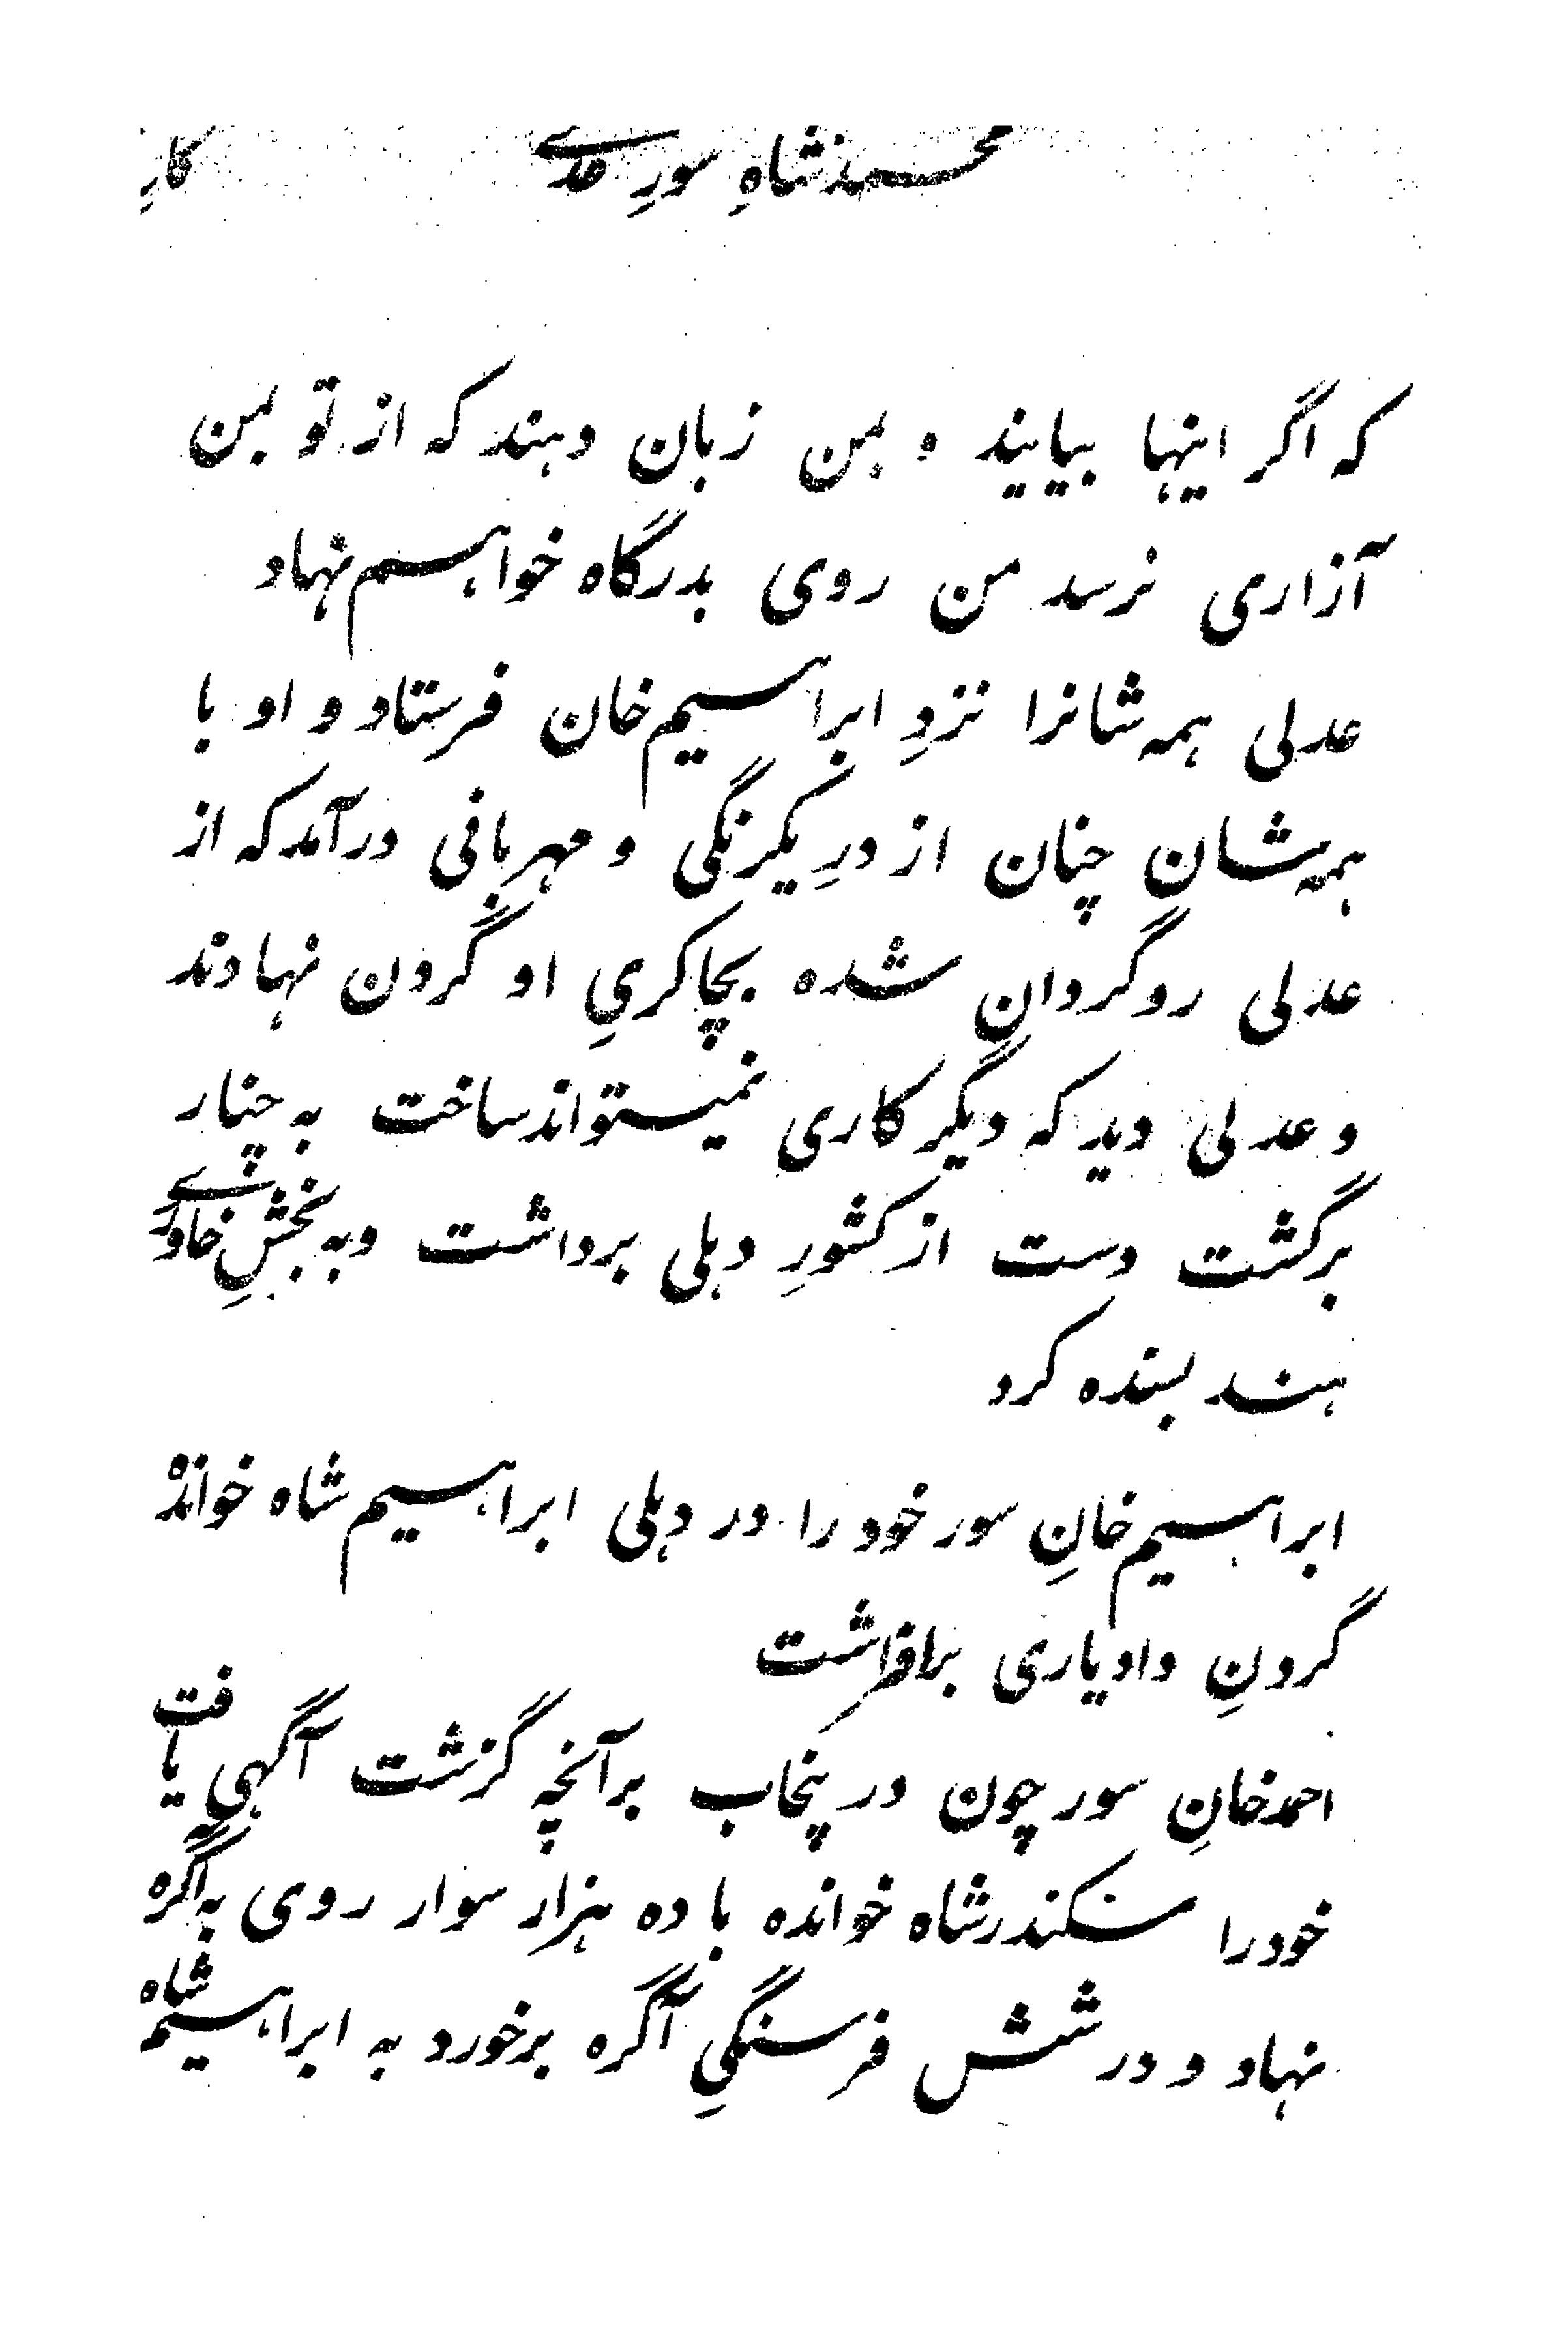 محمدشاهِ سورِ عدلی کارِ
که اگر اینها بیایند و بمن زبان دهند که از تو بمن
آزاری نرسد من روی بدرگاه خواهم نهاد
عدلی همه‌شانرا نزدِ ابراهیم‌خان فرستاد و او با
همه‌شان چنان از درِ یکرنگی و مهربانی درآمد که از
عدلی روگردان شده بچاکریِ او گردن نهادند
و عدلی دید که دیگر کاری نمیتواند ساخت به چنار
برگشت دست از کشورِ دهلی برداشت و به بخشِ خاوری
هند بسنده کرد
ابراهیم‌خانِ سور خود را در دهلی ابراهیم شاه خوانده
گردنِ دادیاری برافراشت
احمدخانِ سور چون در پنجاب بر آنچه گزشت آگهی یافت
خود را سکندرشاه خوانده با ده هزار سوار روی به آگره
نهاد و در شش فرسنگیِ آگره برخورد به ابراهیم شاه